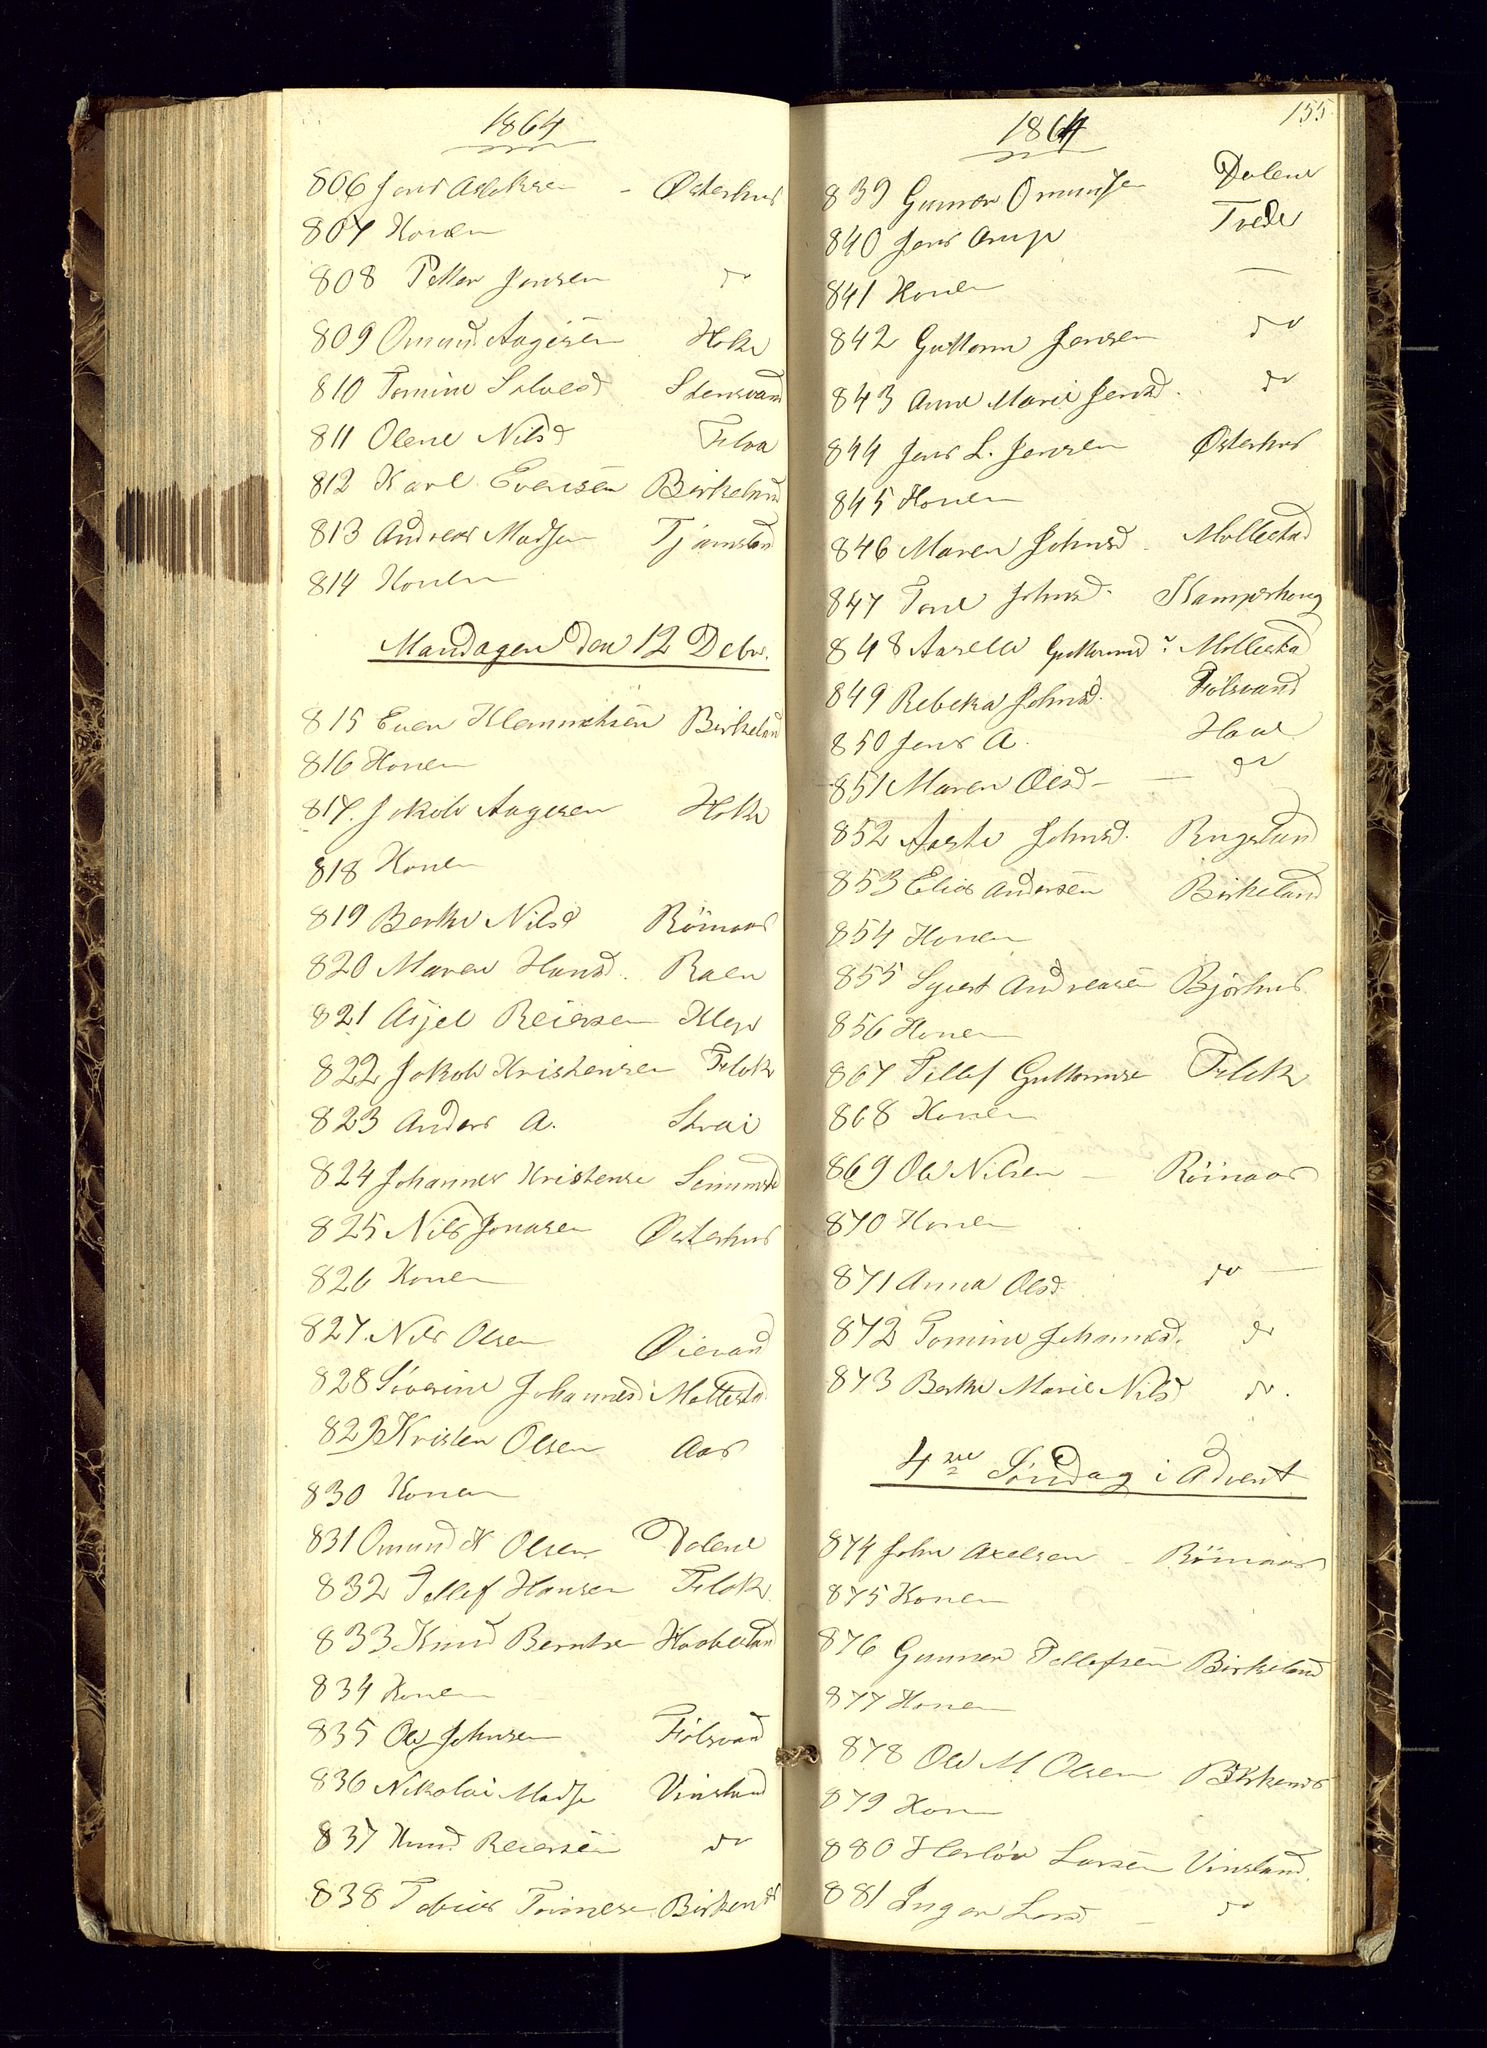 1864
806 Jens Aslaksen - Østerhus
807 Konen
808 Petter Jensen do
809 Omund Aagesen Hoke
810 Tomine Salvesd Stensvand
811 Olene Nilsd Felva
812 Karl Evensen Birkeland
813 Andreas Madsen Tjomsland
814 Konen
Mandagen den 12 Debr.
815 Even Klemmetsen Birkeland
816 Konen
817. Jakob Aagesen Hoke
818 Konen
819 Berthe Nilsd Röinaas
820 Maren Hansd. Raen
821 Asjel Reiersen Klep
822 Jakob Kristensen Flak
823 Anders A. Strai
824 Johannes Kristense
825 Nils Jonasen Østerhus
826 Konen
827. Nils Olsen Øievand
828 Søverine Johannesd Mollestd
829 Kristen Olsen Aas
830 Konen
831 Omund K Olsen Dolene
832 Tellef Hansen Flak
833 Knud Berntse Haabesland
834 Konen
835 Ole Johnsen Fidsvand
836 Nikolai Madse Vinsland
837 Knud Reiersen do
838 Tobias Tomese Birkend
1864
155
839 Gunder Omundsen Dolene
840 Jens Arup Tvede
841 Konen —
842 Guttorm Jensen do
843 Anne Marie Jensd. do
844 Jens L. Jensen Østerhus
845 Konen
846 Maren Johnsd - Mollestad
847 Tone Johnsd. Kamperhoug
848 Aaselle Guttormsd Mollestad
849 Rebeka Johnsd. Fidsvand
850 Jens A. Haae
851 Maren Olsd - — do
852 Aaste Johnsd. Rugsland
853 Elias Andersen Birkeland
854 Konen
855 Syvert Andreasen Bjørhus
856 Konen
867 Tellef Guttormse Flak
868 Konen
869 Ole Nilsen - Röinaas
870 Konen
871 Anna Olsd do —
872 Tomine Johannesd. do
873 Berthe Marie Nilsd do.
4de Søndag i Advent
874 John Axelsen - Röinaas
875 Konen
876 Gunder Tellefsen Birkeland
877 Konen
878 Ole M Olsen Birkenes
879 Konen
880 Herløv Larsen Vinsland.
881 Inger Larsd - do